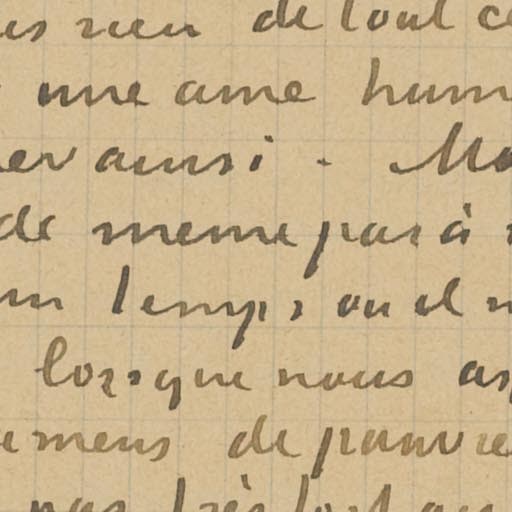 rien de tout ce
une ame hum
er ainsi. Ma
de meme pas à
un temps ou il n
lorsque nous as
umens de pauvre
pas très